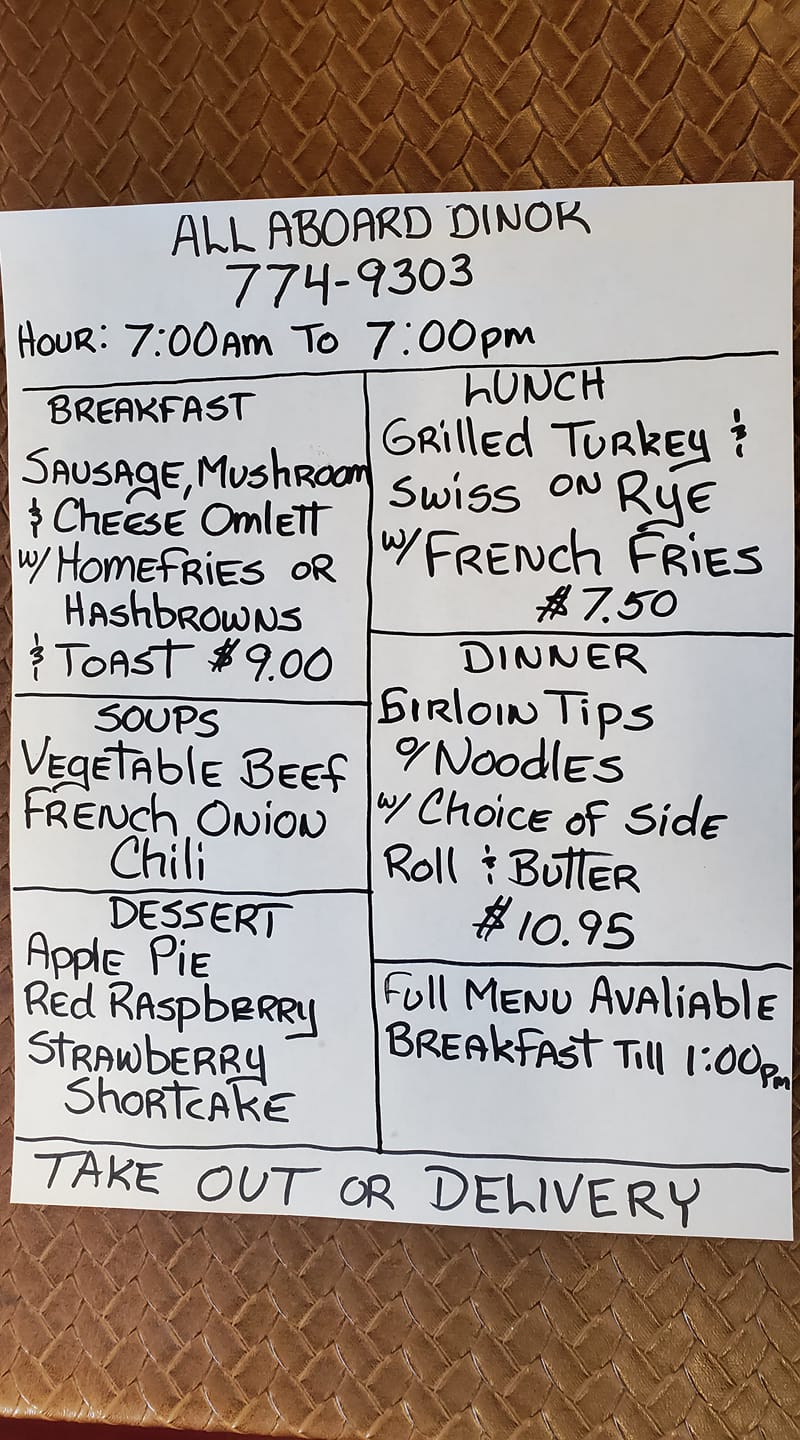 ALL ABOARD DINOR
774-9303
HOUR: 7:00AM TO 7:00PM
BREAKFAST
SAUSAGE, MUSHROOM
& CHEESE OMLETT
W/ HOMEFRIES OR
HASHBROWNS
& TOAST $9.00
SOUPS
VEGETABLE BEEF
FRENCH ONION
CHILI
DESSERT
APPLE PIE
RED RASPBERRY
STRAWBERRY
SHORTCAKE
LUNCH
GRILLED TURKEY &
SWISS ON RYE
W/ FRENCH FRIES
$7.50
DINNER
SIRLOIN TIPS
O/ NOODLES
W/ CHOICE OF SIDE
ROLL & BUTTER
$10.95
FULL MENU AVALIABLE
BREAKFAST TILL 1:00PM
TAKE OUT OR DELIVERY